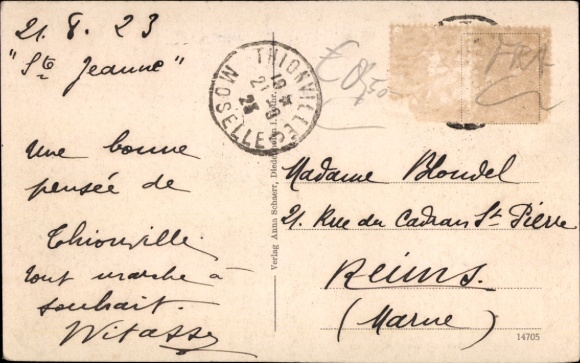 21. 8. 23
"Ste Jeanne"
Une bonne
pensée de
Thionville.
tout marche à
souhait.
Witasse
THIONVILLE
MOSELLE
21
23
Verlag Anna Schaerr, Diedenhofen
FRA
Madame Blondel
21. Rue du Cadran St. Pierre
Reims.
(Marne)
14705